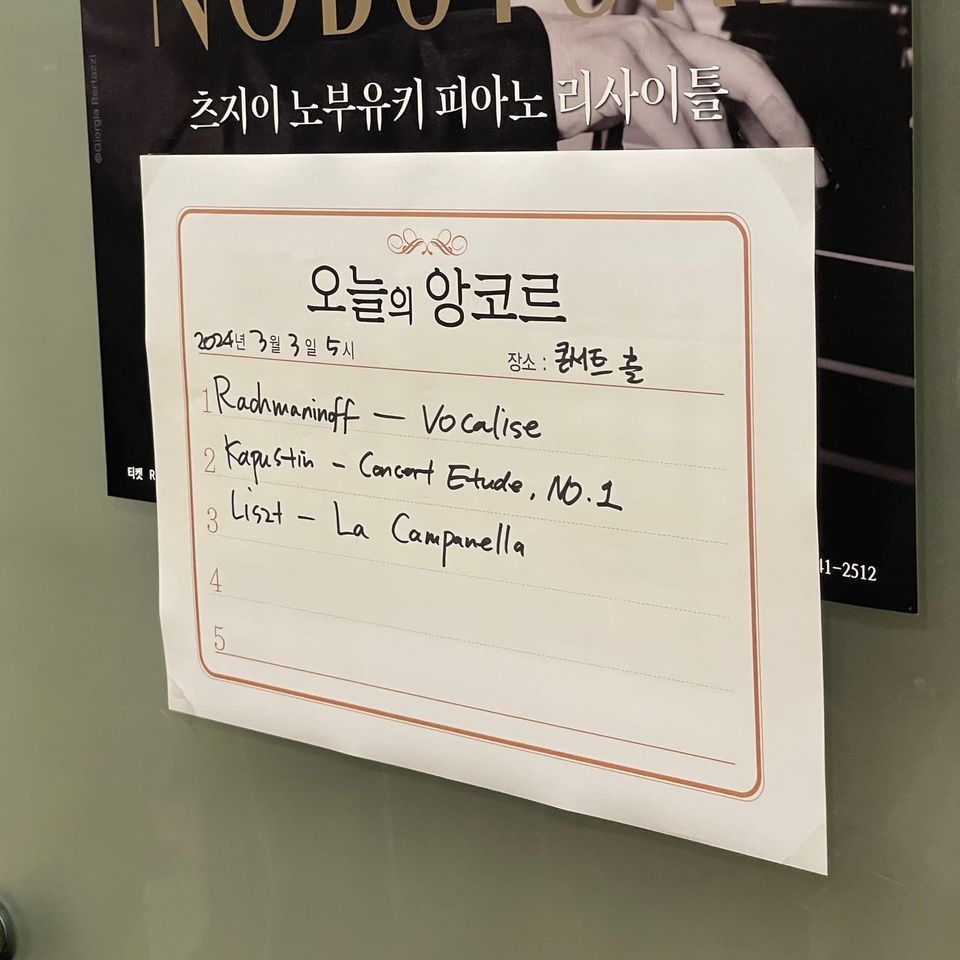 NOBUYUKI
©Giorgia Bertazzi
츠지이 노부유키 피아노 리사이틀
오늘의 앙코르
2024년 3월 3일 5시
장소 : 콘서트 홀
1 Rachmaninoff — Vocalise
2 Kapustin - Concert Etude, NO.1
3 Liszt - La Campanella
4
5
티켓 R
41-2512